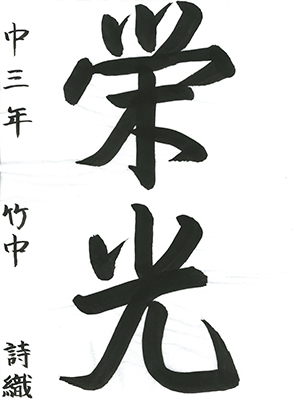 栄光
中三年 竹中 詩織